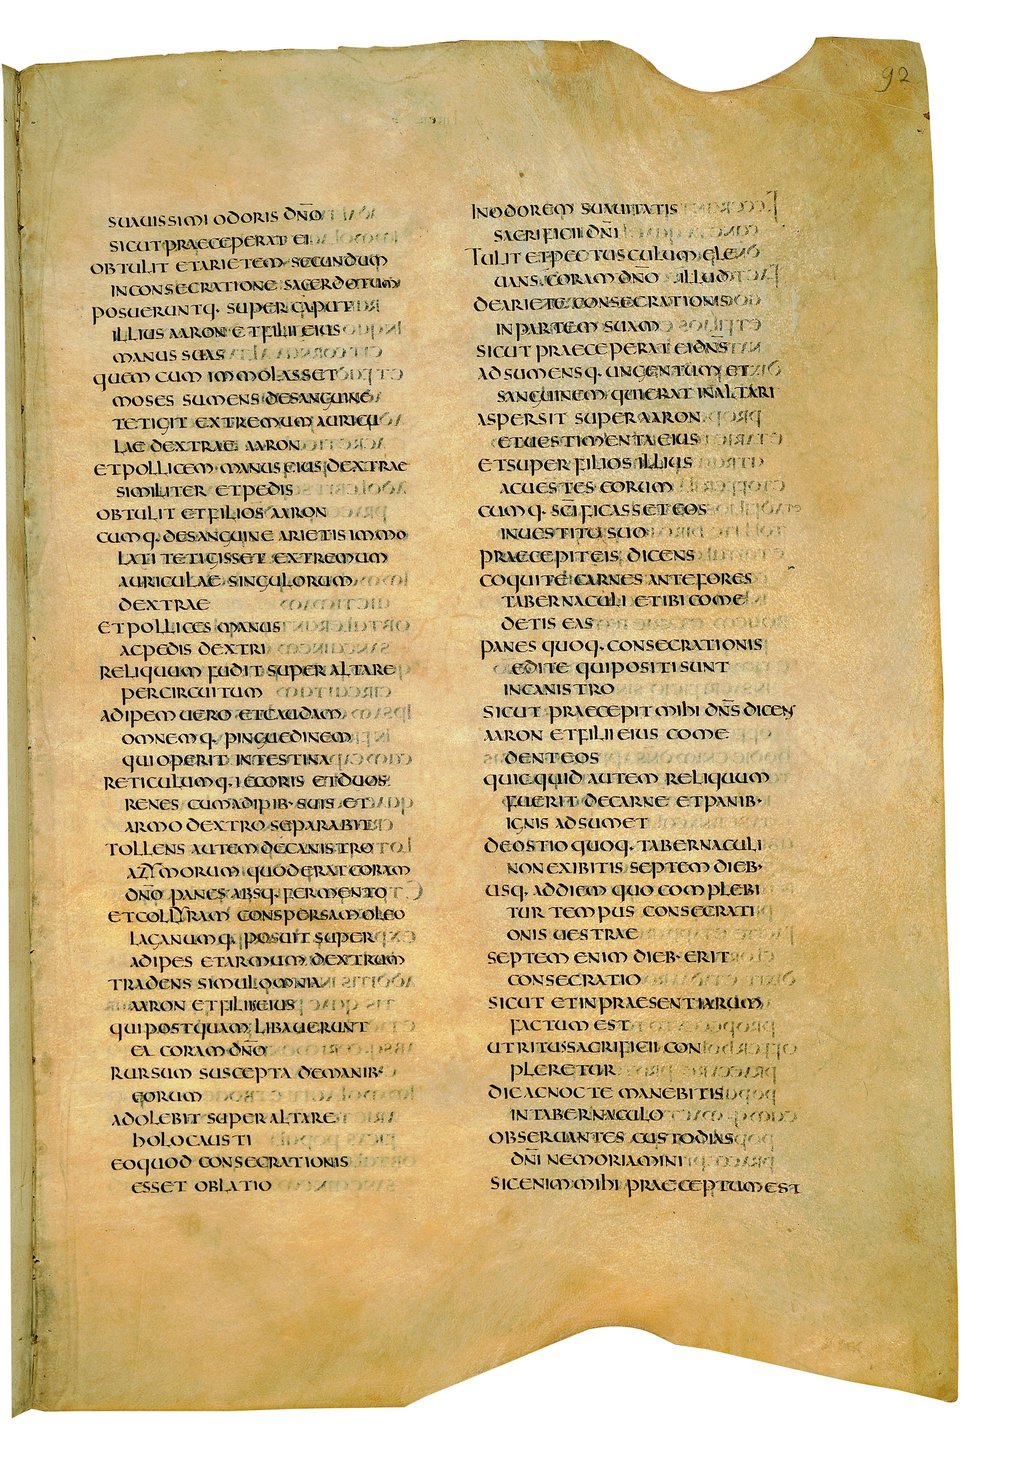 92
SUAUISSIMI ODORIS DN̄O
SICUT PRAECEPERAT EI
OBTULIT ET ARIETEM SECUNDUM
IN CONSECRATIONE SACERDOTUM
POSUERUNTQ· SUPER CAPUT
ILLIUS AARON ET FILII EIUS
MANUS SUAS
QUEM CUM IMMOLASSET
MOSES SUMENS DE SANGUINE
TETIGIT EXTREMUM AURICU
LAE DEXTRAE AARON
ET POLLICEM MANUS EIUS DEXTRAE
SIMILITER ET PEDIS
OBTULIT ET FILIOS AARON
CUMQ· DE SANGUINE ARIETIS IMMO
LATI TETIGISSET EXTREMUM
AURICULAE SINGULORUM
DEXTRAE
ET POLLICES MANUS
AC PEDIS DEXTRI
RELIQUUM FUDIT SUPER ALTARE
PER CIRCUITUM
ADIPEM UERO ET CAUDAM
OMNEMQ· PINGUEDINEM
QUI OPERIT INTESTINA
RETICULUMQ· IECORIS ET DUOS
RENES CUM ADIPIB· SUIS ET
ARMO DEXTRO SEPARABIT
TOLLENS AUTEM DE CANISTRO
AZYMORUM QUOD ERAT CORAM
DN̄O PANES ABSQ· FERMENTO
ET COLLYRAM CONSPERSAM OLEO
LAGANUMQ· POSUIT SUPER
ADIPES ET ARMUM DEXTRUM
TRADENS SIMUL OMNIA
AARON ET FILIIS EIUS
QUI POSTQUAM LIBAUERUNT
EA CORAM DN̄O
RURSUM SUSCEPTA DE MANIB·
EORUM
ADOLEBIT SUPER ALTARE
HOLOCAUSTI
EO QUOD CONSECRATIONIS
ESSET OBLATIO
IN ODOREM SUAUITATIS
SACRIFICII DN̄I
TULIT ET PECTUSCULUM ELE
UANS CORAM DN̄O ILLUD
DE ARIETE CONSECRATIONIS
IN PARTEM SUAM
SICUT PRAECEPERAT EI DN̄S
ADSUMENSQ· UNGENTUM ET
SANGUINEM QUI ERAT IN ALTARI
ASPERSIT SUPER AARON
ET UESTIMENTA EIUS
ET SUPER FILIOS ILLIUS
AC UESTES EORUM
CUMQ· SC̄IFICASSET EOS
IN UESTITU SUO
PRAECEPIT EIS DICENS
COQUITE CARNES ANTE FORES
TABERNACULI ET IBI COME
DETIS EAS
PANES QUOQ· CONSECRATIONIS
EDITE QUI POSITI SUNT
IN CANISTRO
SICUT PRAECEPIT MIHI DN̄S DICENS
AARON ET FILII EIUS COME
DENT EOS
QUICQUID AUTEM RELIQUUM
FUERIT DE CARNE ET PANIB·
IGNIS ADSUMET
DE OSTIO QUOQ· TABERNACULI
NON EXIBITIS SEPTEM DIEB·
USQ· AD DIEM QUO COMPLEBI
TUR TEMPUS CONSECRATI
ONIS UESTRAE
SEPTEM ENIM DIEB· ERIT
CONSECRATIO
SICUT ET IN PRAESENTIARUM
FACTUM EST
UT RITUS SACRIFICII CON
PLERETUR
DIE AC NOCTE MANEBITIS
IN TABERNACULO
OBSERUANTES CUSTODIAS
DN̄I NE MORIAMINI
SIC ENIM MIHI PRAECEPTUM EST